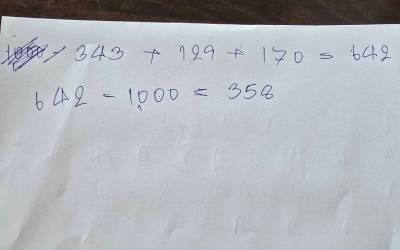 343 + 129 + 170 = 642
642 - 1000 = 358